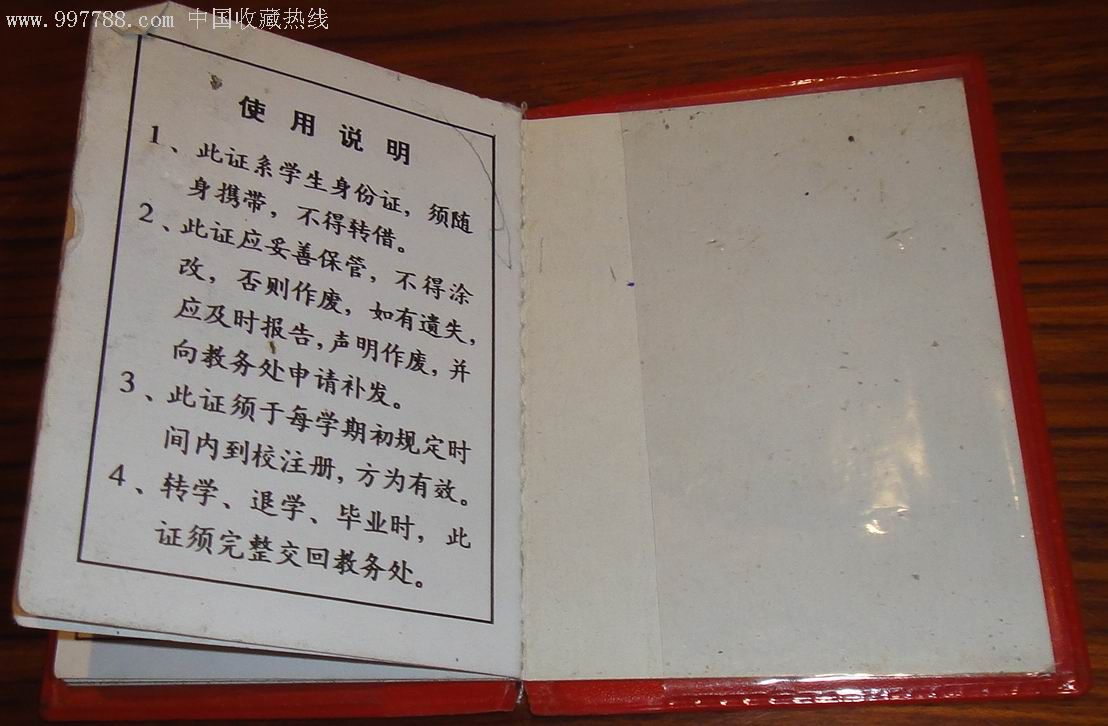 www.997788.com 中国收藏热线
使用说明
1、此证系学生身份证，须随
身携带，不得转借。
2、此证应妥善保管，不得涂
改，否则作废，如有遗失，
应及时报告，声明作废，并
向教务处申请补发。
3、此证须于每学期初规定时
间内到校注册，方为有效。
4、转学、退学、毕业时，此
证须完整交回教务处。